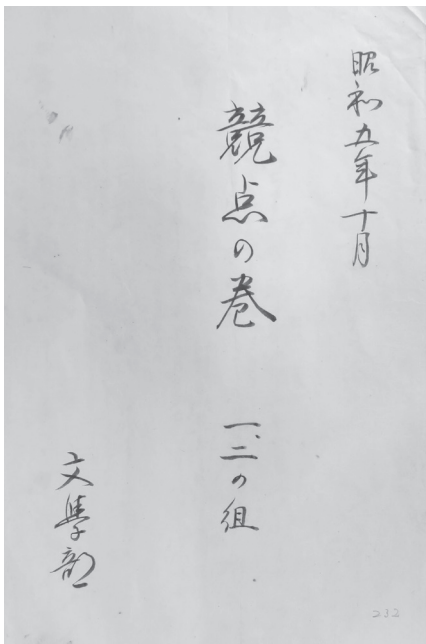 昭和五年十月
競点の巻 一、二の組
文學部
232